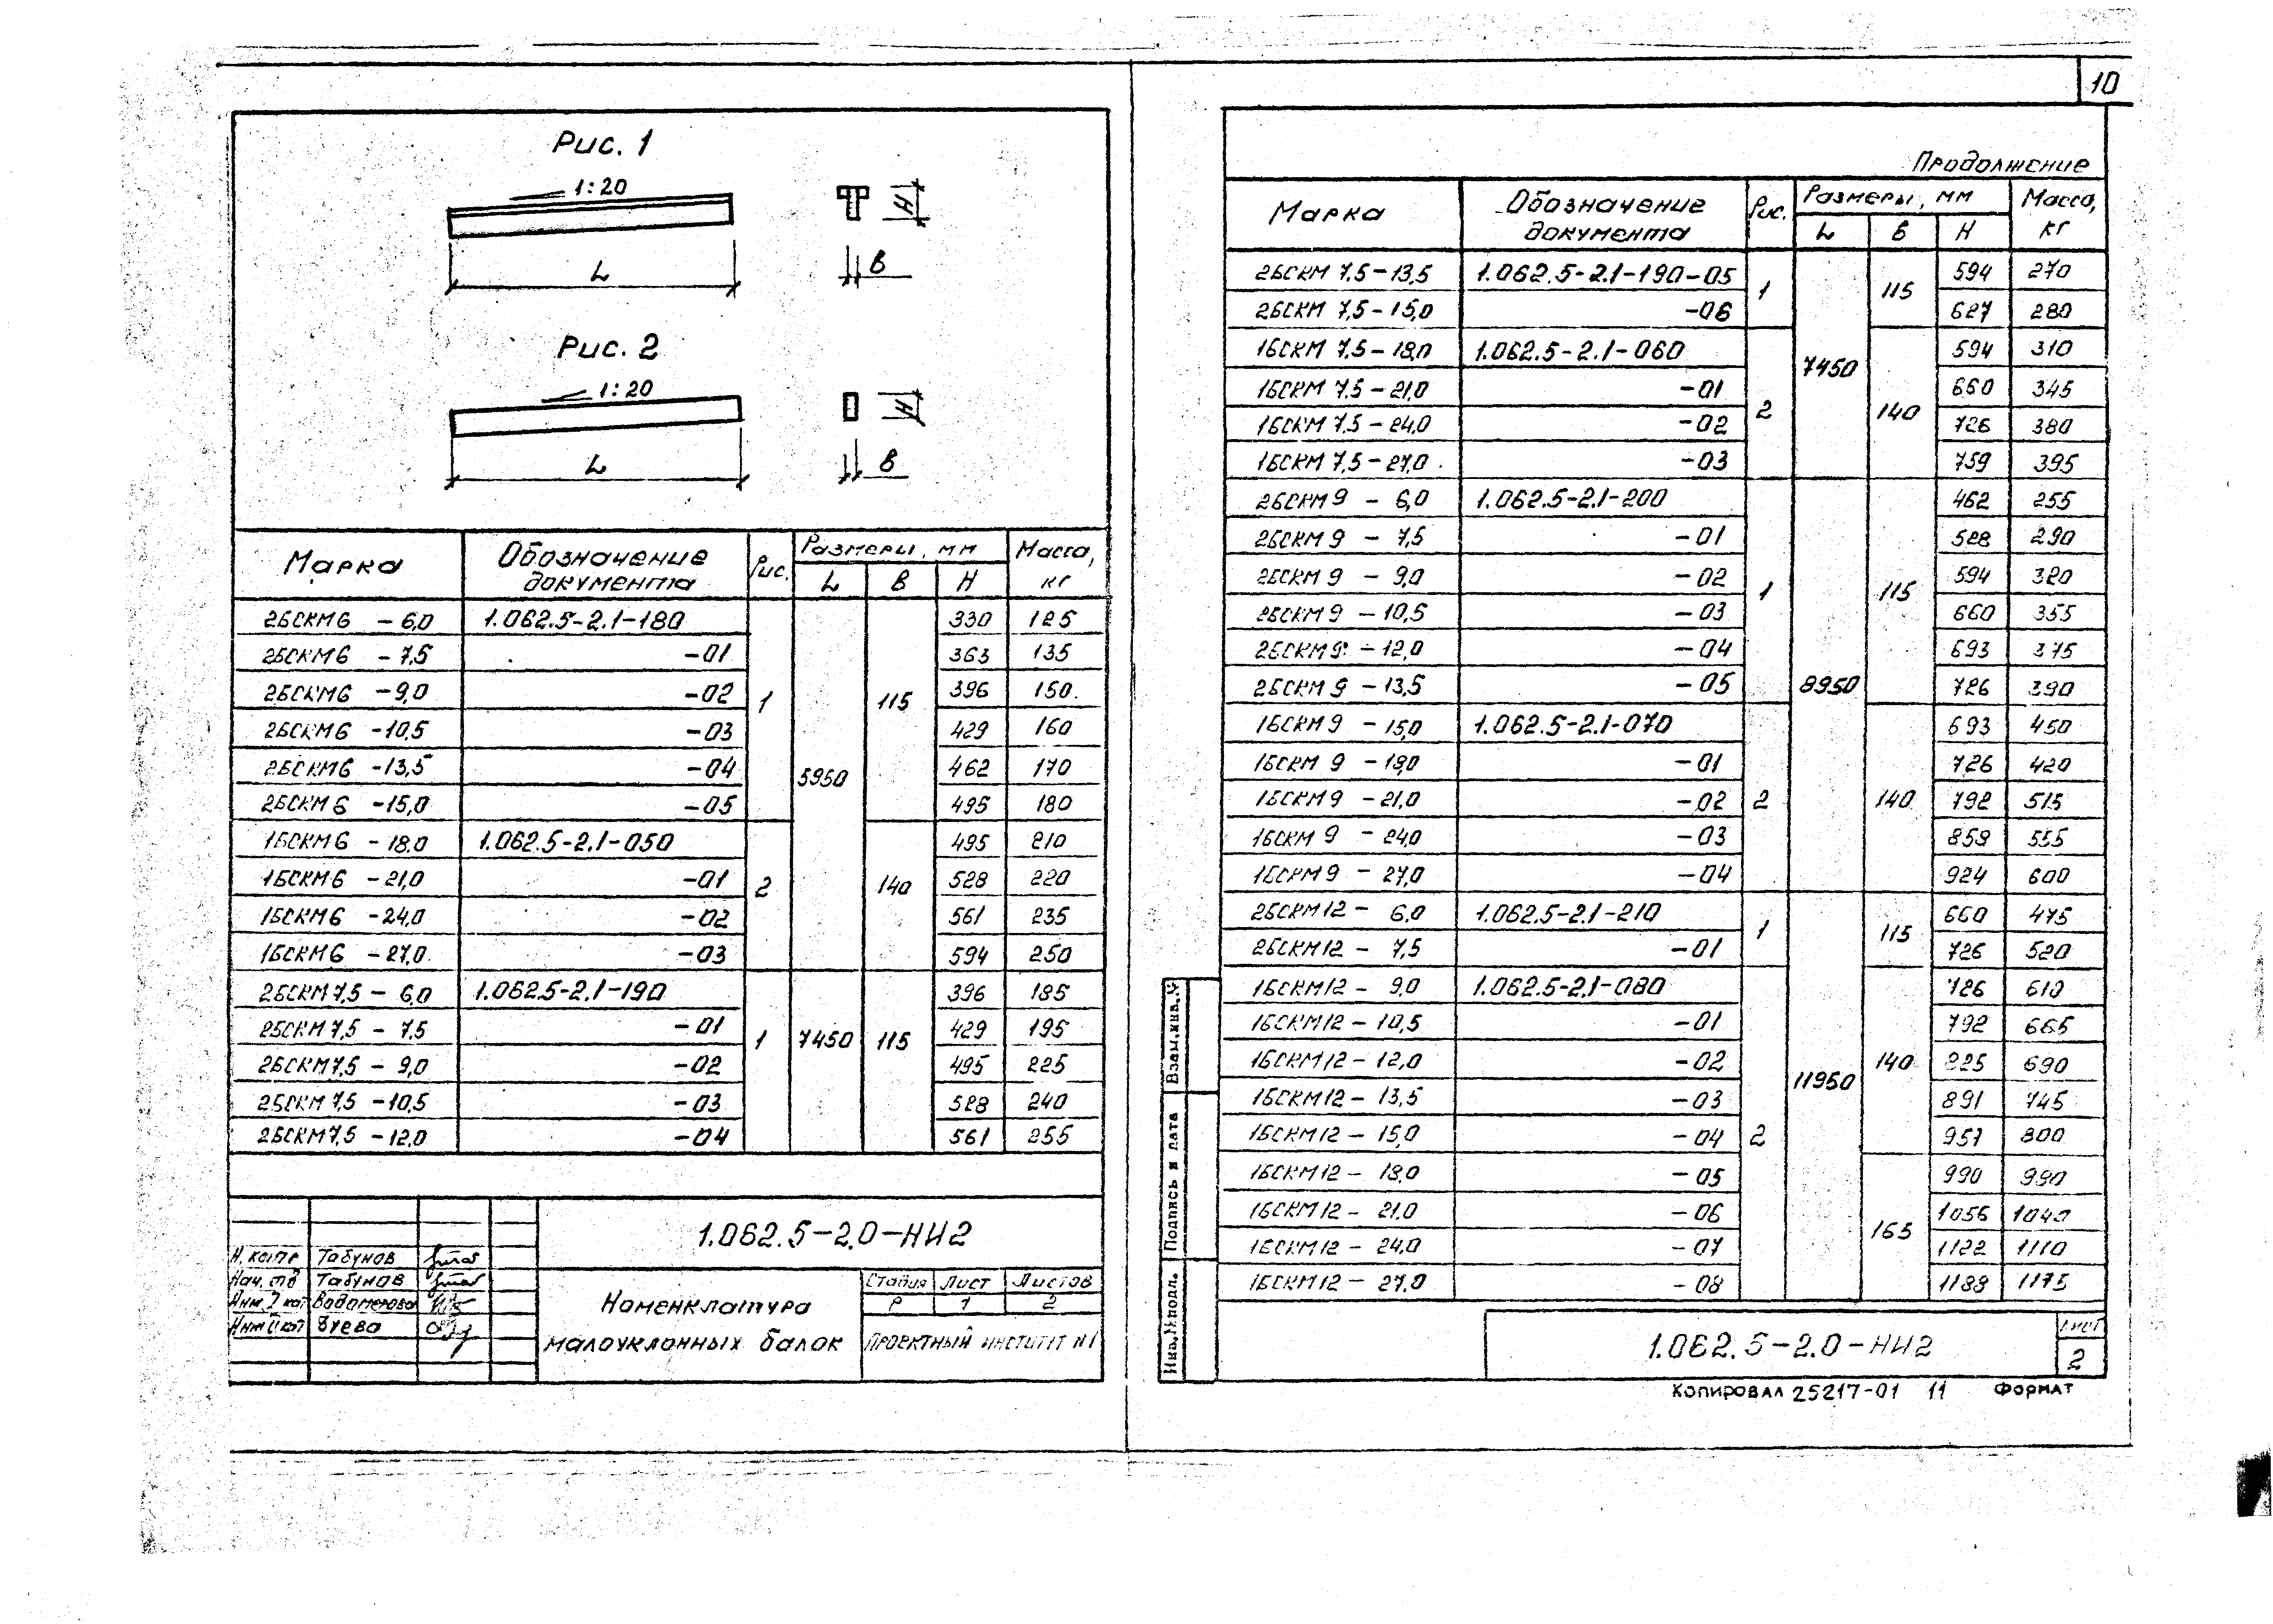 10
Рис. 1
1:20
H
L
B
Рис. 2
1:20
H
L
B
Марка Обозначение документа Рис. Размеры, мм Масса, кг
L B H
2БСКМ6 – 6,0 1.062.5-2.1-180 1 5950 115 330 125
2БСКМ6 – 7,5 -01 363 135
2БСКМ6 – 9,0 -02 396 150
2БСКМ6 – 10,5 -03 429 160
2БСКМ6 – 13,5 -04 462 170
2БСКМ6 – 15,0 -05 495 180
1БСКМ6 – 18,0 1.062.5-2.1-050 2 140 495 210
1БСКМ6 – 21,0 -01 528 220
1БСКМ6 – 24,0 -02 561 235
1БСКМ6 – 27,0 -03 594 250
2БСКМ7,5 – 6,0 1.062.5-2.1-190 1 7450 115 396 185
2БСКМ7,5 – 7,5 -01 429 195
2БСКМ7,5 – 9,0 -02 495 225
2БСКМ7,5 – 10,5 -03 528 240
2БСКМ7,5 – 12,0 -04 561 255
1.062.5-2.0-НИ2
Н. контр Табунов
Нач. отд Табунов
Номенклатура
малоуклонных балок
Стадия Лист Листов
Р 1 2
Проектный институт №1
Продолжение
Марка Обозначение документа Рис. Размеры, мм Масса, кг
L B H
2БСКМ 7,5 – 13,5 1.062.5-2.1-190-05 1 7450 115 594 270
2БСКМ 7,5 – 15,0 -06 627 280
1БСКМ 7,5 – 18,0 1.062.5-2.1-060 2 140 594 310
1БСКМ 7,5 – 21,0 -01 660 345
1БСКМ 7,5 – 24,0 -02 726 380
1БСКМ 7,5 – 27,0 -03 759 395
2БСКМ9 – 6,0 1.062.5-2.1-200 1 8950 115 462 255
2БСКМ9 – 7,5 -01 528 290
2БСКМ9 – 9,0 -02 594 320
2БСКМ9 – 10,5 -03 660 355
2БСКМ9 – 12,0 -04 693 375
2БСКМ9 – 13,5 -05 726 390
1БСКМ9 – 15,0 1.062.5-2.1-070 2 140 693 450
1БСКМ9 – 18,0 -01 726 420
1БСКМ9 – 21,0 -02 792 515
1БСКМ9 – 24,0 -03 858 555
1БСКМ9 – 27,0 -04 924 600
2БСКМ12 – 6,0 1.062.5-2.1-210 1 11950 115 660 475
2БСКМ12 – 7,5 -01 726 520
1БСКМ12 – 9,0 1.062.5-2.1-080 2 140 726 610
1БСКМ12 – 10,5 -01 792 665
1БСКМ12 – 12,0 -02 825 690
1БСКМ12 – 13,5 -03 891 745
1БСКМ12 – 15,0 -04 957 800
1БСКМ12 – 18,0 -05 165 990 980
1БСКМ12 – 21,0 -06 1056 1040
1БСКМ12 – 24,0 -07 1122 1110
1БСКМ12 – 27,0 -08 1188 1175
Взам.инв.№
Подпись и дата
Инв.№подл.
1.062.5-2.0-НИ2
Лист
2
Копировал 25217-01 11 Формат